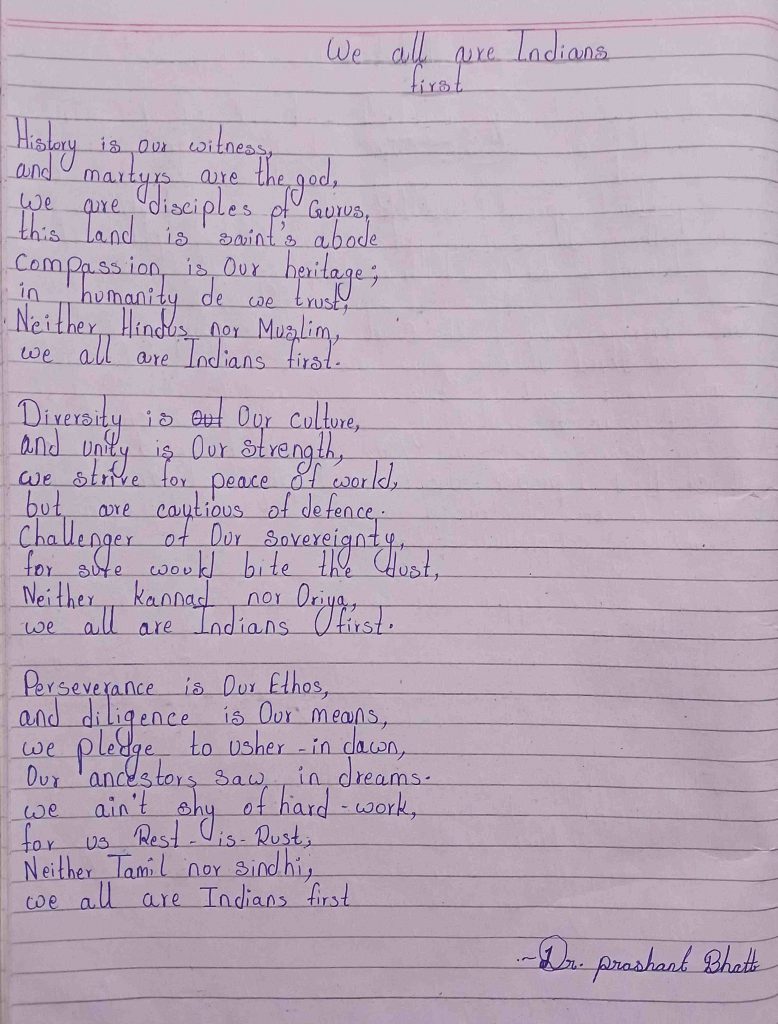 We all are Indians
first
History is our witness,
and martyrs are the god,
we are disciples of Gurus,
this land is saint's abode
Compassion is Our heritage;
in humanity de we trust,
Neither Hindus nor Muslim,
we all are Indians first.
Diversity is out Our culture,
and unity is Our strength,
we strive for peace of world,
but are cautious of defence.
Challenger of Our sovereignty,
for sure would bite the dust,
Neither kannad nor Oriya,
we all are Indians first.
Perseverance is Our Ethos,
and diligence is Our means,
we pledge to usher-in dawn,
Our ancestors saw in dreams.
we ain't shy of hard-work,
for us Rest-is-Rust;
Neither Tamil nor sindhi,
we all are Indians first
~Dr. prashant Bhatt